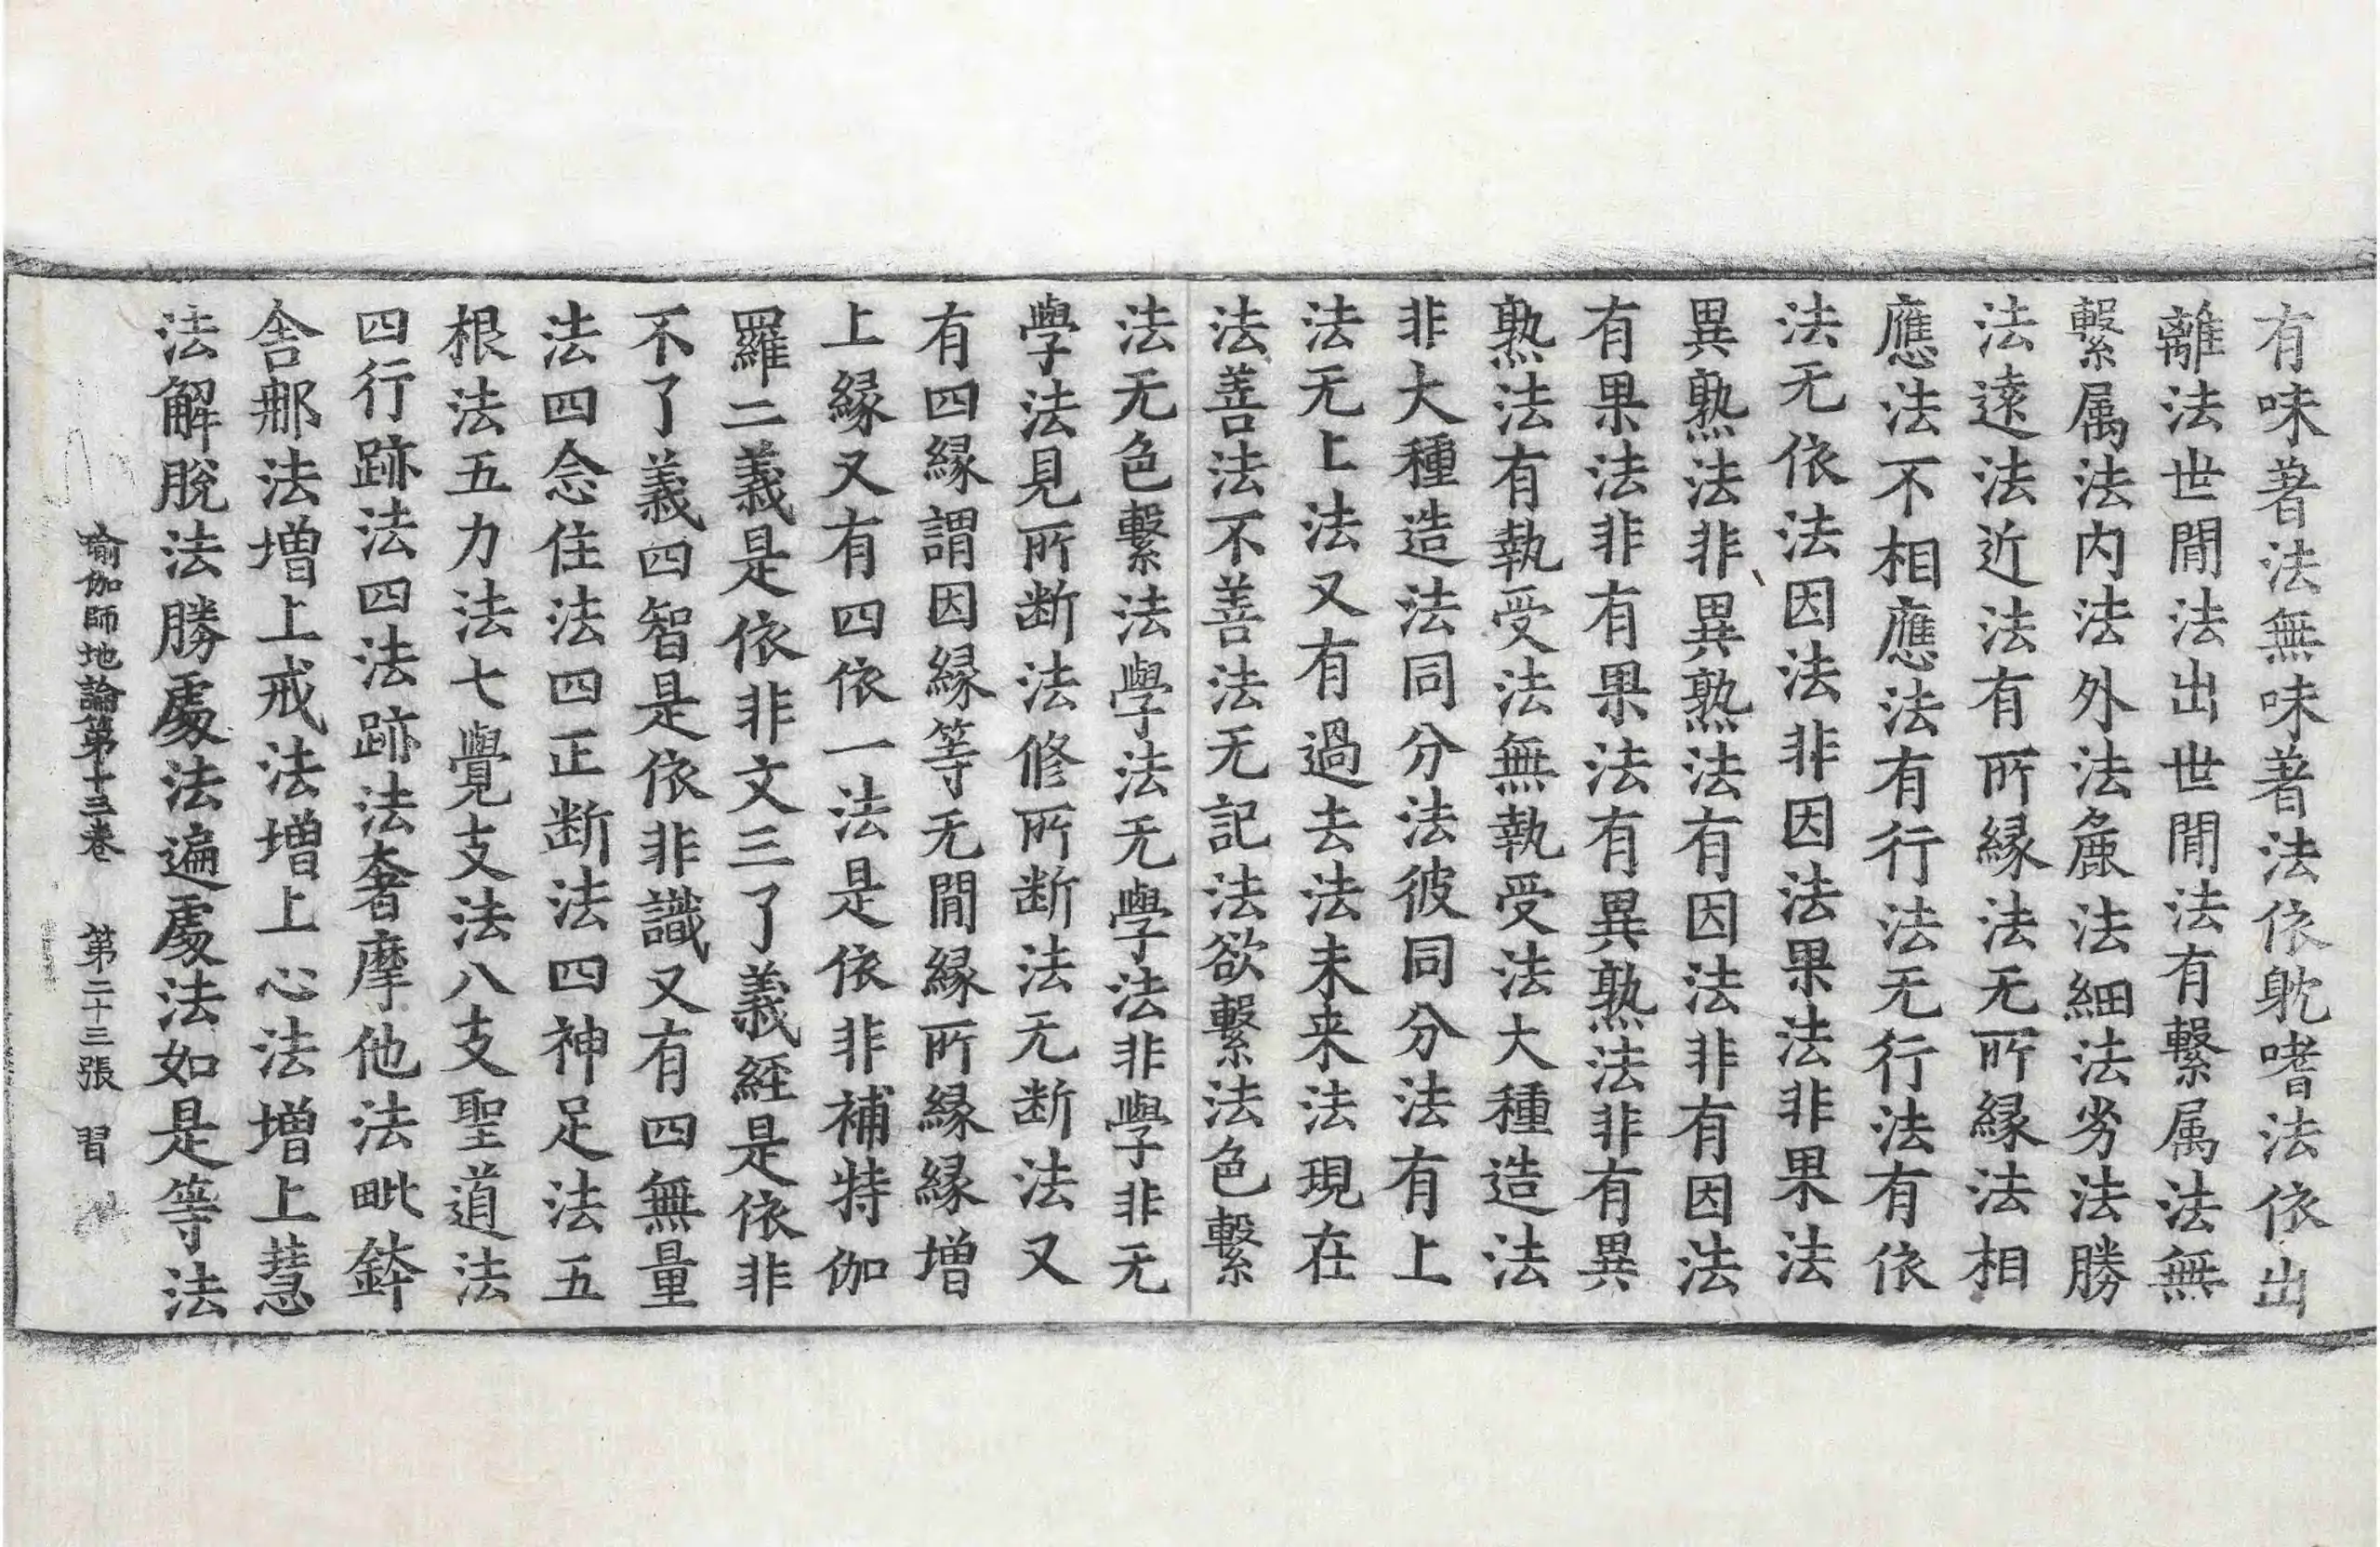 有味著法無味著法依躭嗜法依出
離法世間法出世間法有繫属法無
繫属法内法外法麁法細法劣法勝
法逺法近法有所縁法无所縁法相
應法不相應法有行法无行法有依
法无依法因法非因法果法非果法
異熟法非異熟法有因法非有因法
有果法非有果法有異熟法非有異
熟法有執受法無執受法大種造法
非大種造法同分法彼同分法有上
法无上法又有過去法未来法現在
法善法不善法无記法欲繫法色繫
法无色繫法學法无學法非學非无
學法見所断法修所断法无断法又
有四縁謂因縁等无間縁所縁縁増
上縁又有四依一法是依非補特伽
羅二義是依非文三了義經是依非
不了義四智是依非識又有四無量
法四念住法四正断法四神足法五
根法五力法七覺支法八支聖道法
四行跡法四法跡法奢摩他法毗鉢
舍那法増上戒法増上心法増上慧
法解脫法勝處法遍處法如是等法
瑜伽師地論第十三卷 第二十三張 習